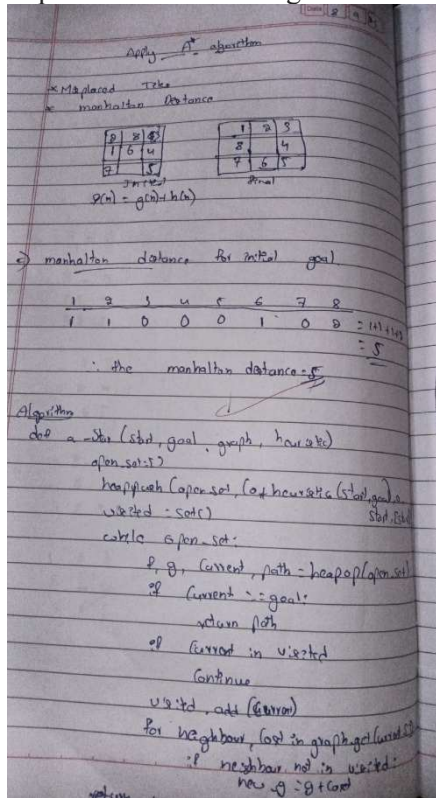 Date 8 9
Apply A* algorithm
* Misplaced Tiles
* manhaltan Distance
2 8 3
1 6 4
7 5
Initial
1 2 3
8 4
7 6 5
Final
f(n) = g(n) + h(n)
manhaltan distance for initial goal.
1 2 3 4 5 6 7 8
1 1 0 0 0 1 0 2 = 1+1+1+2
= 5
∴ the manhaltan distance = 5
Algorithm
def a-star (start, goal, graph, heuristic)
open_set = []
heappush (open_set, (0+heuristic (start, goal), 0
start, [start]
visited = set()
while open_set:
f, g, current, path = heapop (open_set)
if current == goal:
return path
if current in visited
continue
visited.add (current)
for neighbour, cost in graph.get (current,
if neighbour not in visited:
new_g = g + cost